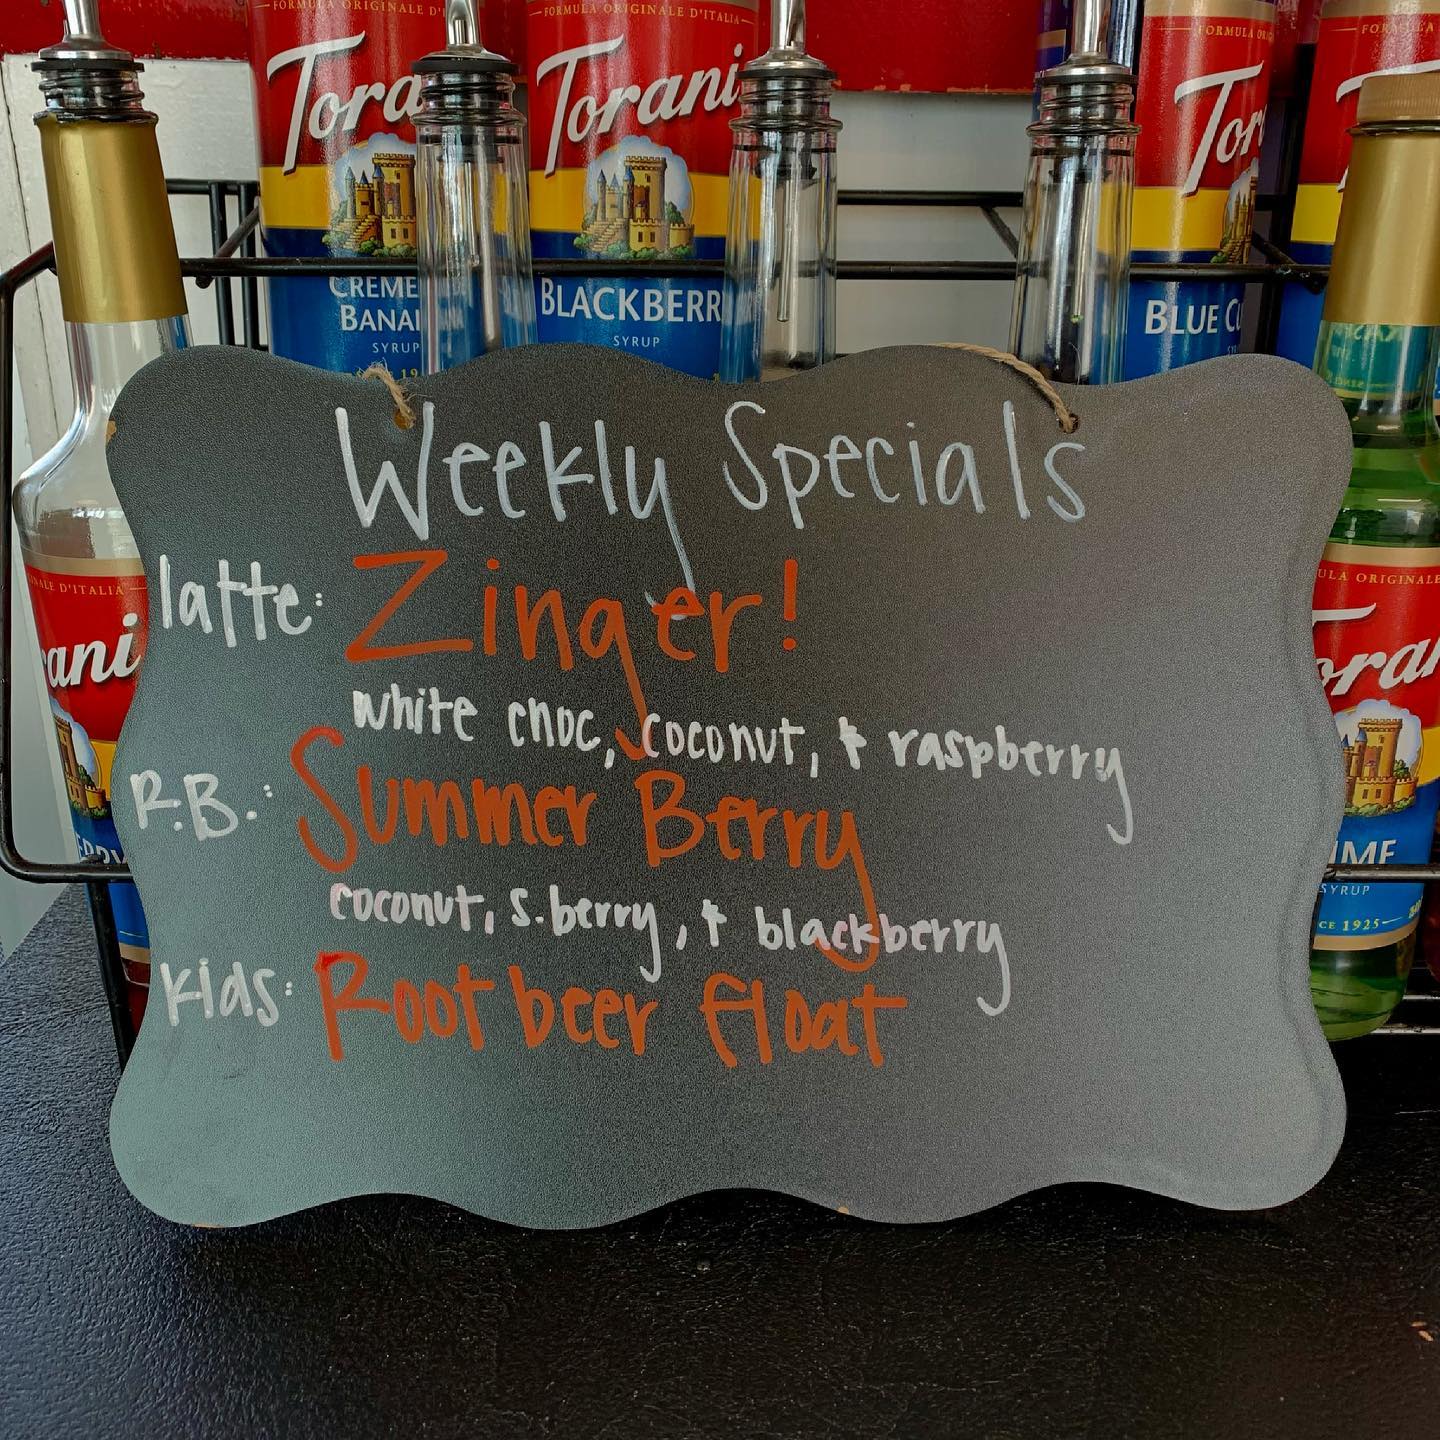 FORMULA ORIGINALE D'I
FORMULA ORIGINALE D'ITALIA
FORMULA
Tora
Torani
Tor
CREME
BANA
SYRUP
BLACKBERR
SYRUP
BLUE CU
Weekly Specials
latte: Zinger!
white choc, coconut, & raspberry
R.B.: Summer Berry
coconut, s.berry, & blackberry
Kids: Root beer float
NALE D'ITALIA
ani
ULA ORIGINALE
oran
IME
SYRUP
CE 1925